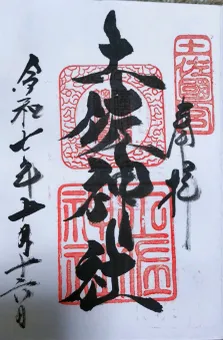 土佐國一宮
奉拝
土佐神社
令和七年十月十六日